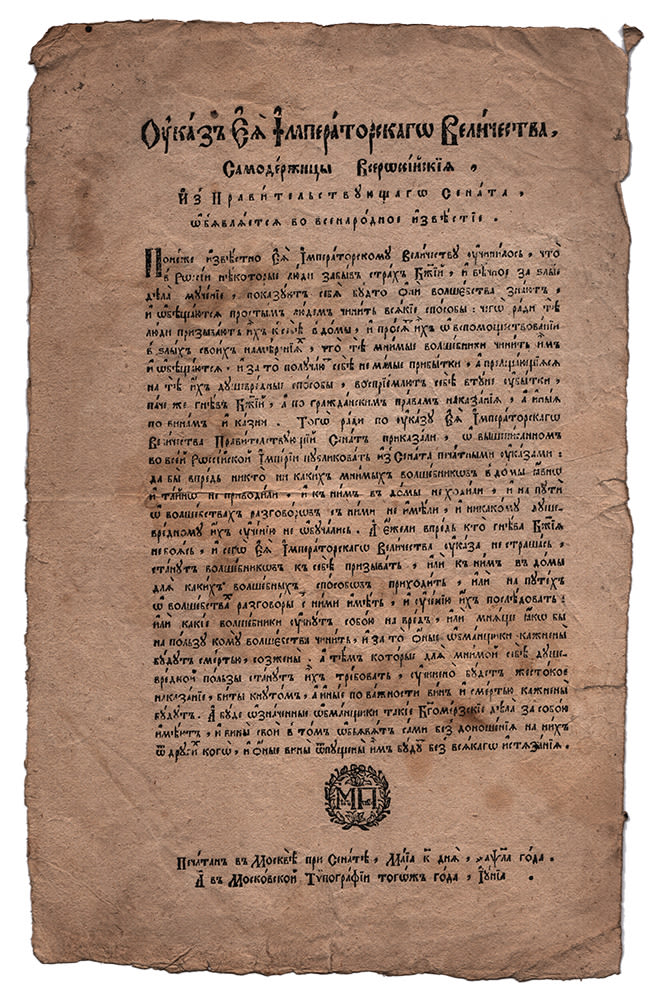 Оука́зъ Є҆ѧ̀ І҆мпера́торскагѡ Вели́чества,
Самоде́ржицы Всерѡссі́йскїѧ,
И҆з̾ Прави́тельствующагѡ Сена́та,
ѡ҆б̾ѧвлѧ́етсѧ во всенаро́дное и҆звѣ́стїе.
Поне́же и҆звѣ́стно Є҆ѧ̀ І҆мпера́торскому Вели́честву ᲂу҆чини́лось, что̀
в̾ Рѡссі́и нѣ́которые лю́ди забы́въ стра́хъ Бж҃їй, и҆ вѣ́чное за ѕлы́е
дѣла̀ муче́нїе, пока́зуютъ себѧ̀ бу́дто ѻ҆нѝ волшебства̀ зна́ютъ,
и҆ ѡ҆бѣща́ютсѧ просты́мъ лю́демъ чини́ть всѧ́кїе спо́собы: чегѡ̀ ра́ди тѣ̀
лю́ди призыва́ютъ и҆́хъ к̾ себѣ̀ в̾ до́мы, и҆ про́сѧтъ и҆́хъ ѡ҆ вспомоществова́нїи
в̾ ѕлы́хъ свои́хъ намѣ́ренїѧхъ, что̀ тѣ̀ мни́мые волше́бники чини́ть и҆̀мъ
и҆ ѡ҆бѣща́ютсѧ. и҆ за то̀ получа́ютъ себѣ̀ не ма́лые при́бытки, а҆ прельща́ющїесѧ
на тѣ̀ и҆́хъ душевре́дные спо́собы, воспрїе́млютъ себѣ̀ втꙋ́не ᲂу҆бы́тки,
па́че же гнѣ́въ Бж҃їй, а҆ по гражда́нскимъ права́мъ наказа́нїѧ, а҆ и҆ны́ѧ
по вина́мъ и҆ ка́зни. Тогѡ̀ ра́ди по ᲂу҆ка́зу Є҆ѧ̀ І҆мпера́торскагѡ
Вели́чества Прави́тельствующїй Сена́тъ приказа́ли, ѡ҆ вышепи́санномъ
во все́й Рѡссі́йской І҆мпе́рїи публикова́ть и҆з̾ Сена́та печа́тными ᲂу҆ка́зами:
да бы впре́дь никто̀ ни каки́хъ мни́мыхъ волше́бникѡвъ в̾ до́мы ꙗ҆́внѡ
и҆ та́йнѡ не приводи́ли, и҆ к̾ ни́мъ въ до́мы не ходи́ли, и҆ на путѝ
ѡ҆ волшебства́хъ разговѡ́рѡвъ съ ни́ми не и҆мѣ́ли, и҆ никако́му душе-
вре́дному и҆́хъ ᲂу҆че́нїю не ѡ҆буча́лись. А҆ є҆́жели впре́дь кто̀ гнѣ́ва Бж҃їѧ
не боѧ́сь, и҆ сегѡ̀ Є҆ѧ̀ І҆мпера́торскагѡ Вели́чества ᲂу҆ка́за не страша́сь,
ста́нутъ волше́бникѡвъ к̾ себѣ̀ призыва́ть, и҆лѝ к̾ ни́мъ въ до́мы
длѧ̀ каки́хъ волше́бныхъ спо́собѡвъ приходи́ть, и҆лѝ на путе́хъ
ѡ҆ волшебства́хъ разгово́ры с̾ ни́ми и҆мѣ́ть, и҆ ᲂу҆че́нїю и҆́хъ послѣ́довать:
и҆лѝ какі́е волше́бники ᲂу҆чну́тъ собо́ю на вре́дъ, и҆лѝ мнѧ́ще ꙗ҆́кѡ бы
на по́льзу кому̀ волшебства̀ чини́ть, и҆ за то̀ ѻ҆́ные ѡ҆бма́нщики кажнены̀
бу́дутъ сме́ртью, созже́ны. а҆ тѣ́мъ кото́рые длѧ̀ мни́мой себѣ̀ душе-
вре́дной по́льзы ста́нутъ и҆́хъ тре́бовать, ᲂу҆чинено̀ бу́детъ жесто́кое
наказа́нїе, би́ты кнуто́мъ, а҆ и҆ны́е по ва́жности ви́нъ и҆ сме́ртью кажнены̀
бу́дутъ. А҆ бу́де ѡ҆зна́ченные ѡ҆бма́нщики такі́е Бг҃оме́рзскїе дѣла̀ за собо́ю
и҆мѣ́ютъ, и҆ вины̀ своѝ в̾ то́мъ ѡ҆б̾ѧвѧ́тъ са́ми без̾ доноше́нїѧ на ни́хъ
ѿ други́хъ когѡ̀, и҆ ѻ҆́ные вины̀ ѿпу́щены и҆̀мъ бу́дутъ без̾ всѧ́кагѡ и҆стѧза́нїѧ.
МП
Печа́танъ в̾ Москвѣ̀ при Сена́тѣ, Ма́їа к҃ днѧ̀, ҂аѱла го́да.
А҆ в̾ Моско́вской Тѷпогра́фїи тогѡ́жъ го́да, І҆у́нїа .